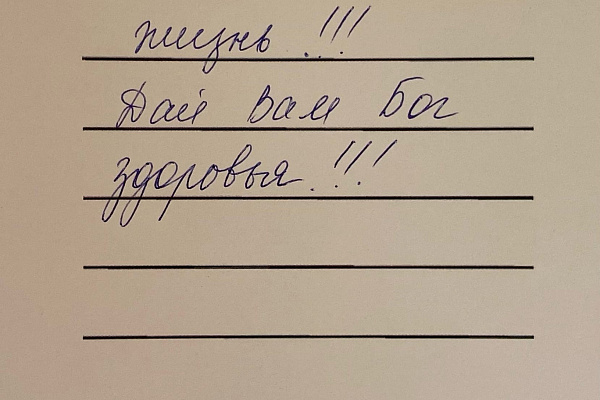 жизнь !!!
Дай Вам Бог
здоровья !!!